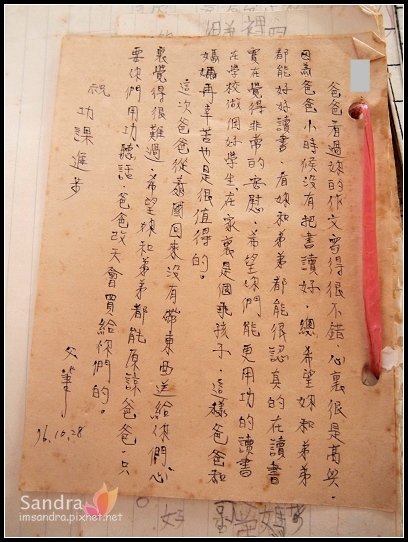 爸爸看過妳的作文寫得很不錯、心裏很是高興。
因為爸爸小時候沒有把書讀好 總希望妳和弟弟
都能好好讀書、看妳和弟弟都能很認真的在讀書
實在覺得非常的安慰 希望妳們能更用功的讀書
在學校做個好學生在家裏是個乖孩子、這樣爸爸和
媽媽再辛苦也是很值得的。
這次爸爸從泰國回來沒有帶東西送給妳們、心
裏覺得很難過、希望妳和弟弟都能原諒爸爸、只
要你們用功、聽話、爸爸改天會買給你們的。
祝
功課進步
父筆
76.10.28
Sandra
imsandra.pixnet.net
媽